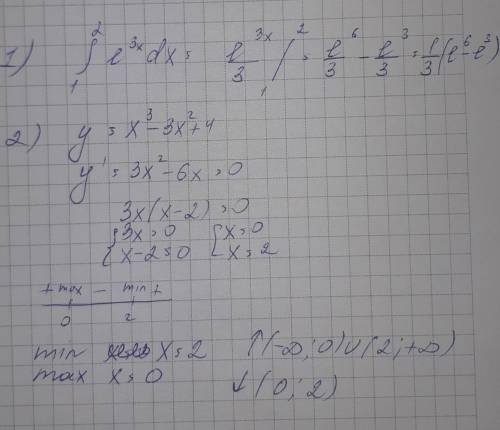 1) ∫₁² e^{3x} dx = e^{3x}/3 |₁² = e⁶/3 - e³/3 = 1/3 (e⁶ - e³)
2) y = x³ - 3x² + 4
y' = 3x² - 6x = 0
3x(x-2) = 0
{3x = 0 {x = 0
{x-2 = 0 {x = 2
+ max - min +
0 2
min x = 2 ↑(-∞; 0)∪(2; +∞)
max x = 0 ↓(0; 2)